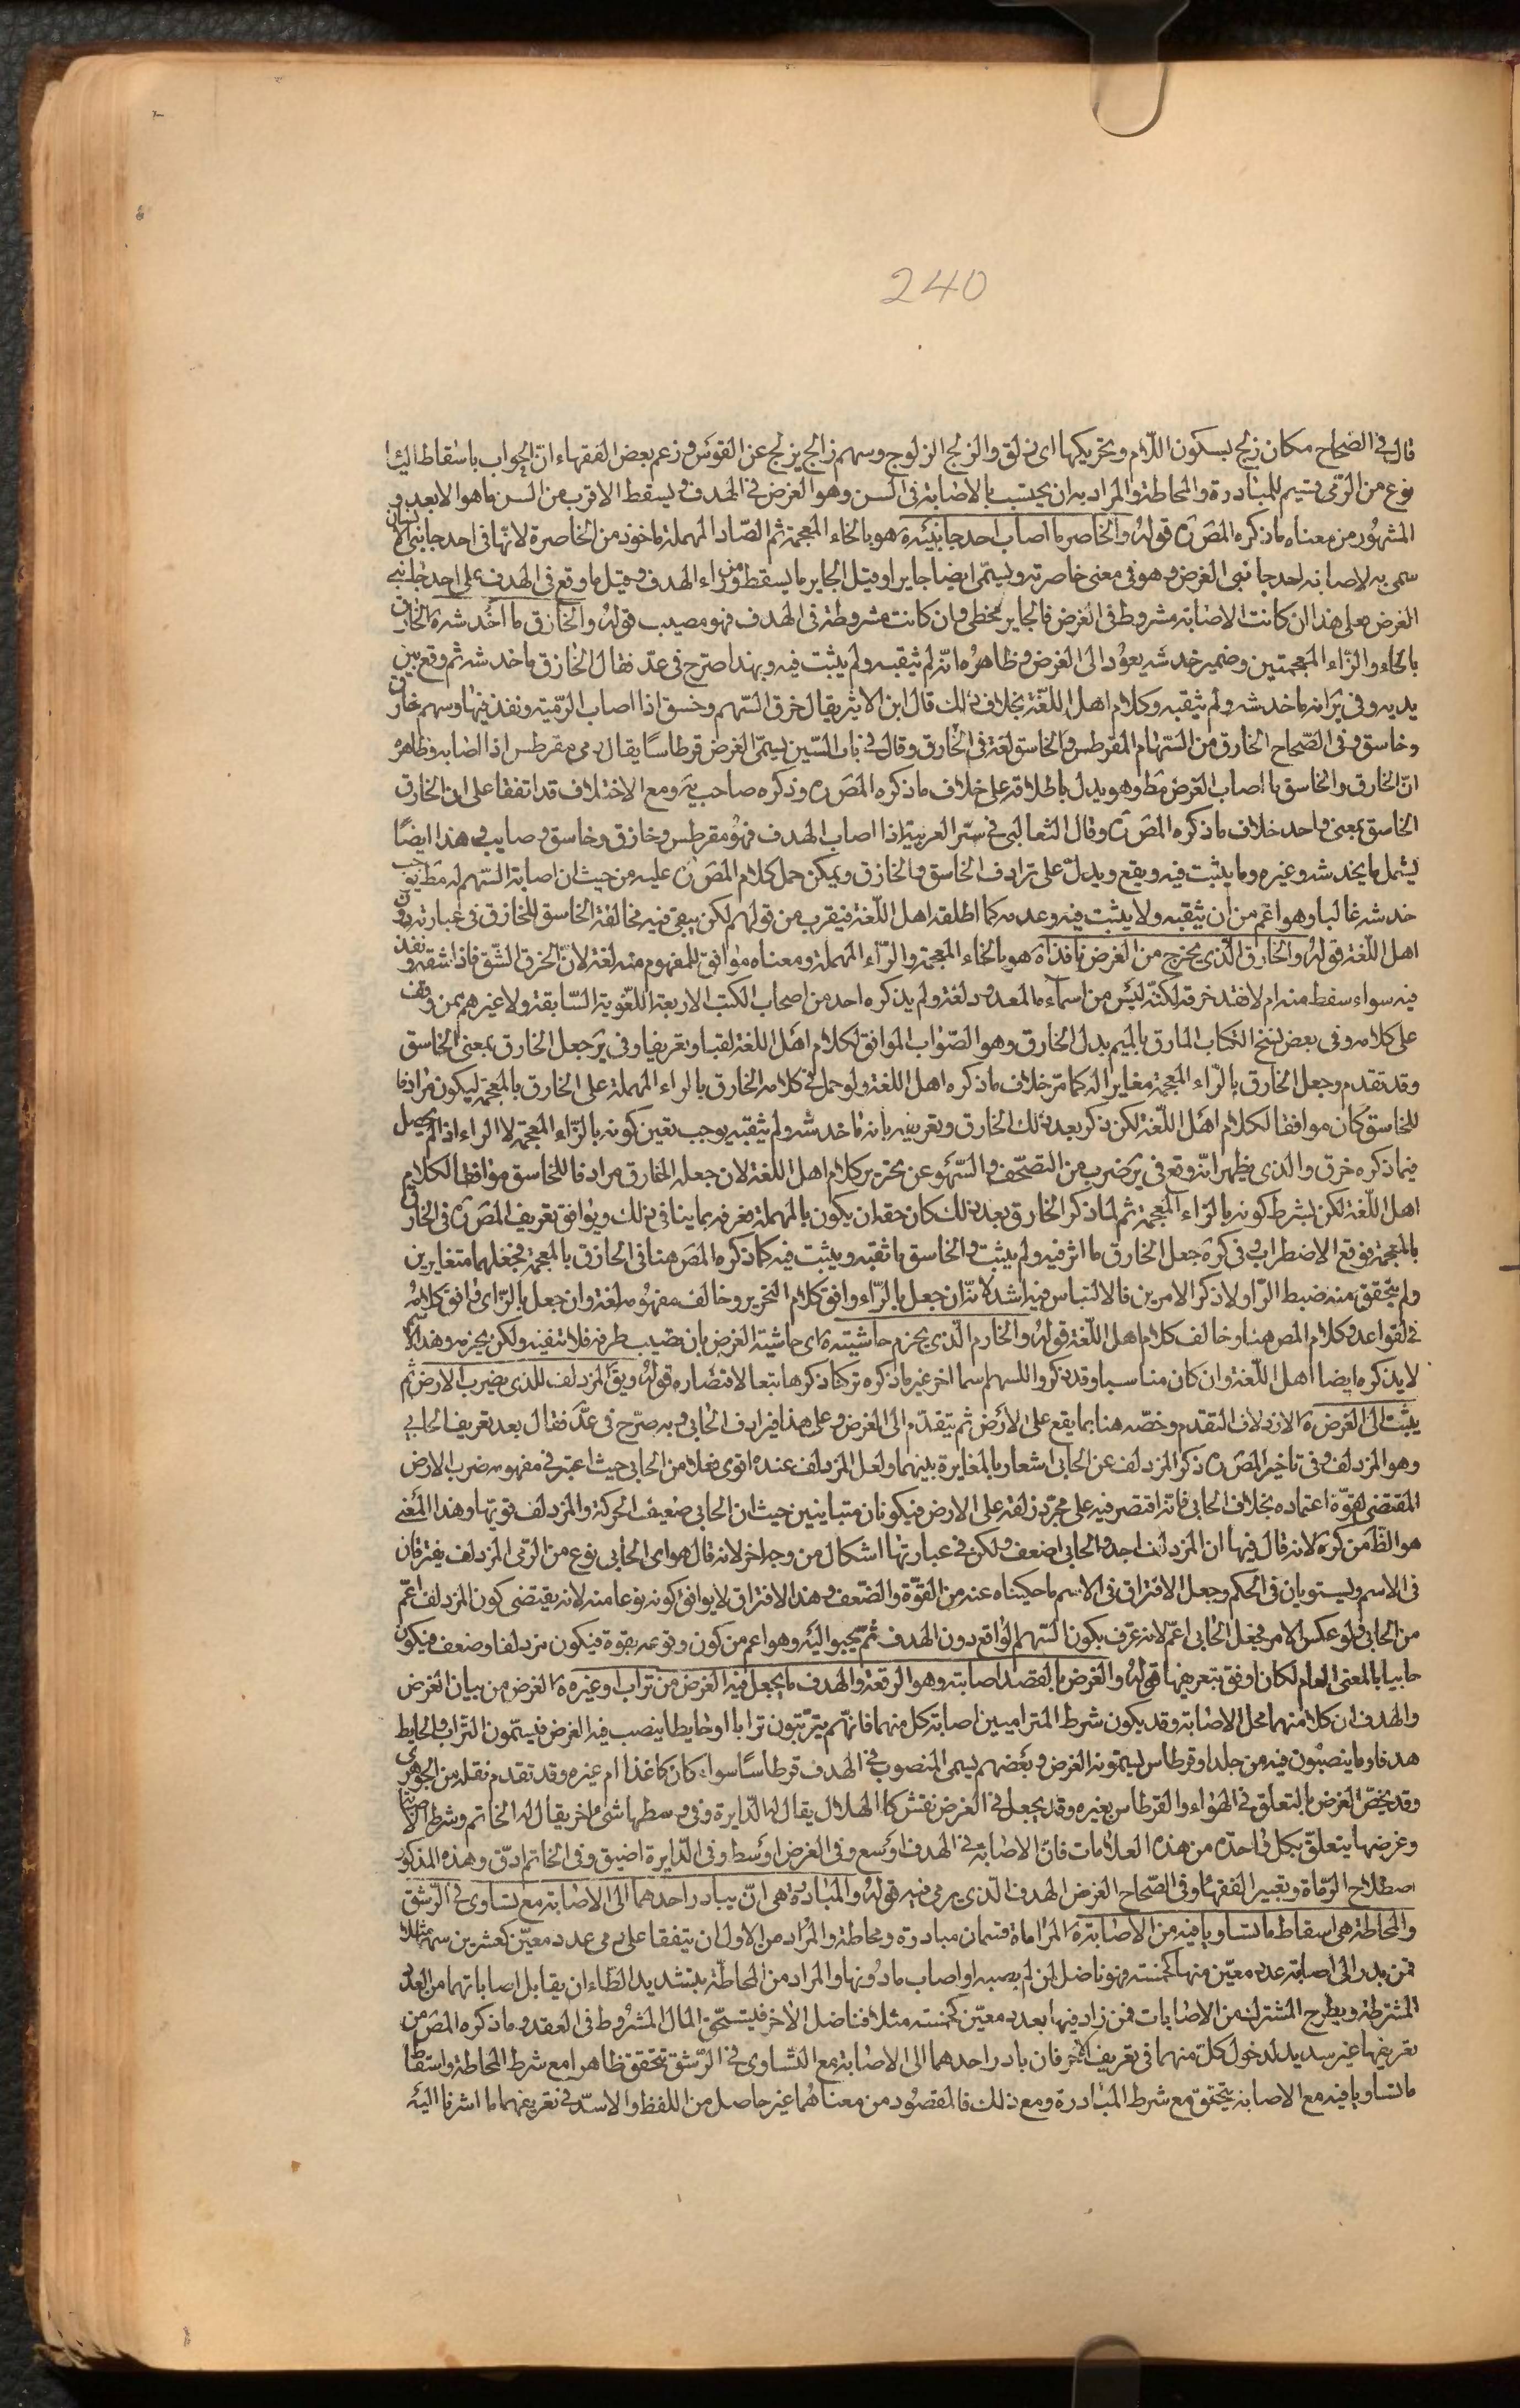 240
قال في الصحاح مكان زلج بسكون اللام وتحريكها اى زلق والزلج الزلوج وسهم زالج يزلج عن القوس وزعم بعض الفقهاء انّ الحواب باسقاط الياء
نوع من الرّمى قسيم للمبادرة والمحاطة والمراد به ان يحتسب بالاصابة فى السن وهو الغرض في الهدف ويسقط الاقرب من السن ما هو الابعد و
المشهور من معناه ما ذكره المصَ ره قوله والخاصر ما اصاب احد جانبيه ه هو بالخاء المعجمة ثم الصّاد المهملة ماخوذ من الخاصرة لانّها فى احد جانبى الانسان
سمى به لاصابته احد جانبى الغرض وهو فى معنى خاصرته ويسمّى ايضا جايرا وقيل الجاير ما يسقط من وراء الهدف وقيل ما وقع فى الهدف على احد جانبى
الغرض فعلى هذا ان كانت الاصابة مشروطة فى الغرض فالجاير مخطى وان كانت مشروطة فى الهدف فهو مصيب قوله والخازق ما اخدشه ه الخازق
بالخاء والزّاء المعجمتين وضمير خدشه يعود الى الغرض وظاهره انّه لم يثقبه ولم يثبت فيه وبهذا صرّح فى عدّ فقال الخازق ما خدشه ثم وقع بين
يديه وفى ير انه ما خدشه ولم يثقبه وكلام اهل اللّغة بخلاف ذلك قال ابن الاثير يقال خزق السّهم وخسق اذا اصاب الرّميّة ونفذ فيها وسهم خازق
وخاسق وفى الصّحاح الخازق من السّهام المقرطس والخاسق لغة فى الخازق وقال في باب السّين يسمّى الغرض قرطاسًا يقال رمى مقرطس اذا اصابه وظاهره
انّ الخازق والخاسق ما اصاب الغرض مَط وهو يدل باطلاقه على خلاف ما ذكره المصَ ره وذكره صاحب يَة ومع الاختلاف قد اتفقا على ان الخازق
الخاسق بمعنى واحد خلاف ما ذكره المصَ ره وقال الثعالبى في سرّ العربية اذا اصاب الهدف فهو مقرطس وخازق وخاسق وصايب وهذا ايضًا
يشمل ما يخدشه وغيره وما يثبت فيه ويقع ويدلّ على ترادف الخاسق والخازق ويمكن حمل كلام المصَ ره عليه من حيث ان اصابة السّهم له مَط يوجب
خدشه غالبا وهو اعم من ان يثقبه ولا يثبت فيه وعدمه كما اطلقه اهل اللّغة فيقرب من قولهم لكن يبقى فيه مخالفة الخاسق للخازق فى عبارته دون
اهل اللّغة قوله والخارق الّذى يخرج من الغرض نافذا ه هو بالخاء المعجمة والرّاء المهملة ومعناه موافق للمفهوم منه لغة لانّ الخرق الشّق فاذا شقه ونفذ
فيه سواء سقط منه ام لا فقد خرقه لكنّه ليس من اسماء ما المعدود لغة ولم يذكره احد من اصحاب الكتب الاربعة اللّغوية السّابقة ولا غيرهم ممن وقفت
على كلامه وفى بعض نسخ الكتاب المارق بالميم بدل الخارق وهو الصّواب الموافق لكلام اهل اللغة لقبا وتعريفا وفى يَر جعل الخارق بمعنى الخاسق
وقد تقدم وجعل الخازق بالزّاء المعجمة مغايرا له كما مرّ خلاف ما ذكره اهل اللغة ولو حمل في كلامه الخارق بالراء المهملة على الخازق بالمعجمة ليكون مرادفا
للخاسق كان موافقا لكلام اهل اللّغة لكن ذكر بعد ذلك الخازق وتعريفه بانه ما خدشه ولم يثقبه يوجب تعين كونه بالزّاء المعجمة لا الراء اذ لم يحصل
فيما ذكره خرق والذى يظهر انّه وقع فى يَر ضرب من التصحّف والسّهو عن تحرير كلام اهل اللغة لان جعله الخارق مرادفا للخاسق موافقا لكلام
اهل اللّغة لكن بشرط كونه بالزاء المعجمة ثم لما ذكر الخازق بعد ذلك كان حقه ان يكون بالمهملة فعرفه بما ينافى ذلك ويوافق تعريف المصَ ره فى الخازق
بالمعجمة فوقع الاضطراب وفى كره جعل الخازق ما اثر فيه ولم يثبت والخاسق ما ثقبه ويثبت فيه كما ذكره المصَ هنا فى الخازق بالمعجمة فجعلهما متغايرين
ولم يتحقق منه ضبط الرّا ولا ذكر الامرين فالالتباس فيه اشد لانّه ان جعل بالرّاء وافق كلام التحرير وخالف مفهومه لغة وان جعل بالزّاى وافق كلامه
فى القواعد وكلام المصَ هنا وخالف كلام اهل اللّغة قوله والخارم الّذى يخرم حاشيته ه اى حاشية الغرض بان يصيب طرفه فلا يثقبه ولكن يخرمه وهذا الاسم
لا يذكره ايضا اهل اللّغة وان كان مناسبا وقد ذكروا للسهم اسما اخر غير ما ذكره تركنا ذكرها تبعا لاقتصاره قوله ويقَ المزدلف للذى يضرب الارض ثم
يثب الى الغرض ه الازدلاف التقدم وخصّه هنا بما يقع على الارض ثم يتقدّم الى الغرض وعلى هذا فيرادف الحابى وبه صرّح فى عدّ فقال بعد تعريف الحابى
وهو المزدلف وفى تاخير المصَ ره ذكر المزدلف عن الحابى اشعار بالمغايرة بينهما ولعل المزدلف عنده اقوى فعلا من الحابى حيث اعتبر في مفهومه ضرب الارض
المقتضى لقوّة اعتماده بخلاف الحابى فانّه اقتصر فيه على مجرّد زلفه على الارض فيكونان متباينين حيث ان الحابى ضعيف الحركة والمزدلف قويّها وهذا المعنى
هو الظّ من كره لانه قال فيها ان المزدلف احد والحابى اضعف ولكن في عبارتها اشكال من وجه اخر لانه قال هو اى الحابى نوع من الرّمى المزدلف يفترقان
فى الاسم ويستويان فى الحكم وجعل الافتراق فى الاسم ما حكيناه عنه من القوّة والضّعف وهذا الافتراق لا يوافق كونه نوعا منه لانه يقتضى كون المزدلف اعمّ
من الحابى ولو عكس الامر فجعل الحابى اعمّ لانه عرّف بكونه السّهم الواقع دون الهدف ثمّ يحبو اليه وهو اعم من كون وقوعه بقوة فيكون مزدلفا وضعف فيكون
حابيا بالمعنى العام لكان اوفق بتعريفها قوله والغرض ما يقصد اصابته وهو الرقعة والهدف ما يجعل فيه الغرض من تراب او غيره ه الغرض من بيان الغرض
والهدف ان كلا منهما محل الاصابة وقد يكون شرط المتراميين اصابة كل منهما فانّهم يرتّبون ترابا او حايطا ينصب فيه الغرض فيسمّون التراب والحايط
هدفا وما ينصبون فيه من جلد او قرطاس يسمّونه الغرض وبعضهم يسمى المنصوب في الهدف قرطاسًا سواء كان كاغذا ام غيره وقد تقدم نقله من الجوهرى
وقد يخصّ الغرض بالتعلق في الهواء والقرطاس بغيره وقد يجعل في الغرض نقش كالهلال يقال له الدّايرة وفى وسطها شئ اخر يقال له الخاتم وشرط الاصابة
وغرضها يتعلّق بكل واحدة من هذه العلامات فانّ الاصابة في الهدف اوسع وفى الغرض اوسط وفى الدّايرة اضيق وفى الخاتم ادقّ وهذه المذكور
اصطلاح الرّماة وتعبير الفقهاء وفى الصّحاح الغرض الهدف الّذى يرمى فيه قوله والمبادرة هى انّ يبادر احدهما الى الاصابة مع تساوى في الرّشق
والمحاطة هى اسقاط ما تساويا فيه من الاصابة ه المراماة قسمان مبادرة ومحاطة والمراد من الاول ان يتفقا على رمى عدد معيّن كعشرين سهما مثلا
فمن بدر الى اصابة عدد معيّن منها كخمسة فهو ناضل لمن لم يصبه او اصاب ما دونها والمراد من المحاطّة بتشديد الطّاء ان يقابل اصاباتهما من العدد
المشترطة ويطرح المشترك من الاصابات فمن زاد فيها بعدد معيّن كخمسة مثلا فناضل الاخر فيستحقّ المال المشروط فى العقد وما ذكره المصَ من
تعريفهما غير سديد لدخول كلّ منهما فى تعريف الاخر فان بادر احدهما الى الاصابة مع التساوى في الرّشق يتحقق ظاهرا مع شرط المحاطة واسقاط
ما تساويا فيه مع الاصابة يتحقق مع شرط المبادرة ومع ذلك فالمقصود من معناهما غير حاصل من اللفظ والاسدّ في تعريفهما ما اشرنا اليه